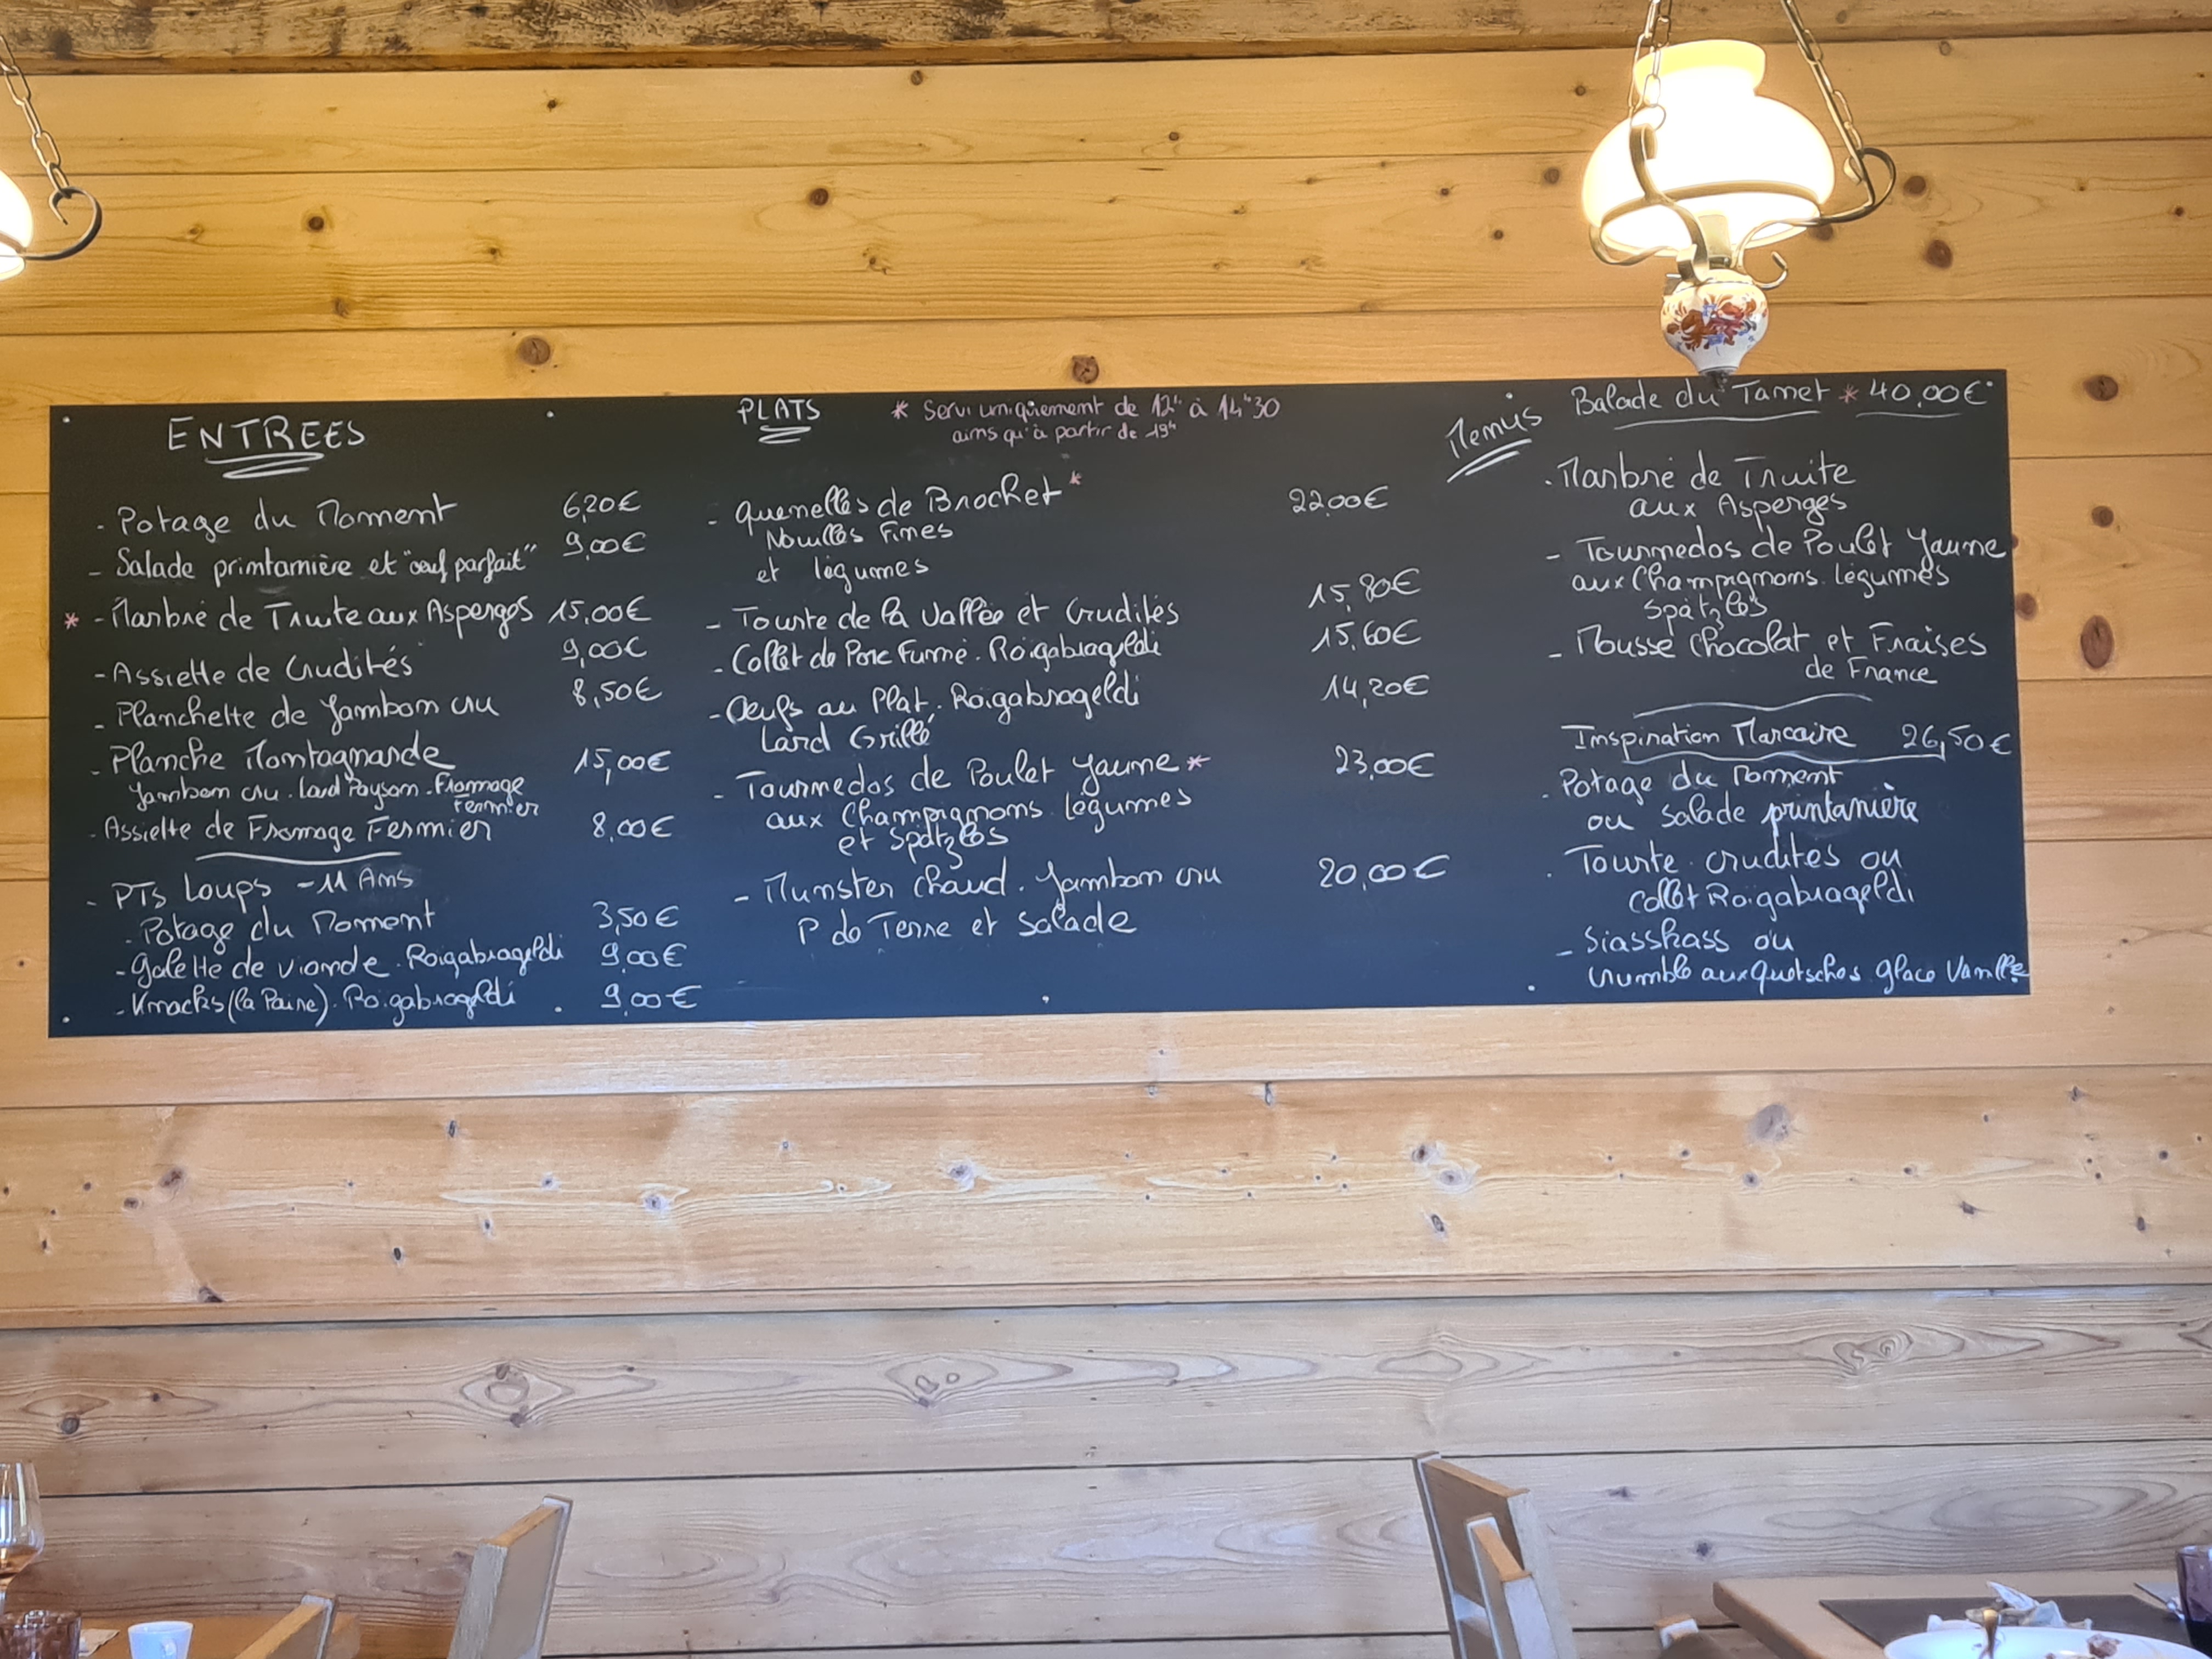 ENTREES
- Potage du Moment 6,20€
- Salade printanière et "œuf parfait" 9,00€
* - Marbré de Truite aux Asperges 15,00€
- Assiette de Crudités 9,00€
- Planchette de Jambon cru 8,50€
- Planche Montagnarde 15,00€
Jambon cru. Lard Paysan. Fromage
Fermier
- Assiette de Fromage Fermier 8,00€
- PTs Loups -11 Ans
- Potage du Moment 3,50€
- Galette de viande. Roïgabrageldi 9,00€
- Knacks (la Paire). Roïgabrageldi 9,00€
PLATS
* Servi uniquement de 12h à 14h30
ainsi qu'à partir de 19h
- Quenelles de Brochet * 22,00€
Nouilles Fines
et légumes
- Tourte de la Vallée et Crudités 15,80€
- Collet de Porc Fumé. Roïgabrageldi 15,60€
- Oeufs au Plat. Roïgabrageldi 14,20€
Lard Grillé
- Tournedos de Poulet Jaune * 23,00€
aux Champignons légumes
et Spätzles
- Munster chaud. Jambon cru 20,00€
P de Terre et Salade
-
Menus
Balade du Tanet * 40,00€
- Marbré de Truite
aux Asperges
- Tournedos de Poulet Jaune
aux Champignons. légumes
Spätzles
- Mousse Chocolat et Fraises
de France
Inspiration Marcaire 26,50€
- Potage du Moment
ou salade printanière
- Tourte. crudités ou
Collet Roïgabrageldi
- Siasskass ou
Crumble aux Quetsches glace Vanille